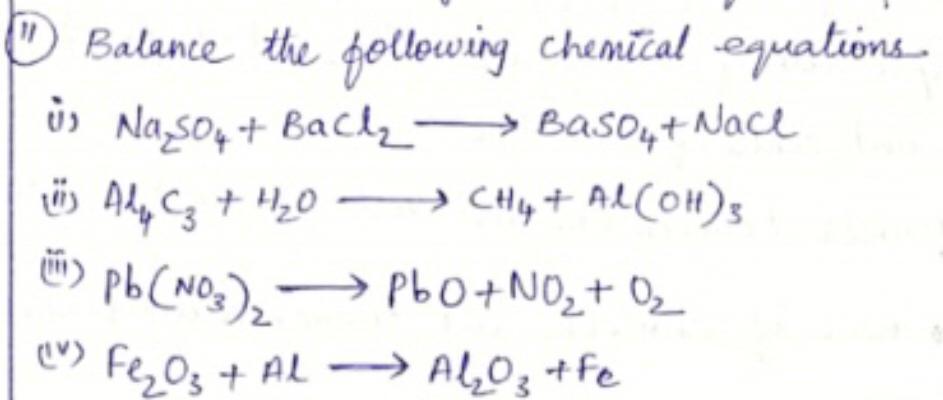 11 Balance the following chemical equations.
(i) Na₂SO₄ + BaCl₂ ⟶ BaSO₄ + NaCl
(ii) Al₄C₃ + H₂O ⟶ CH₄ + Al(OH)₃
(iii) Pb(NO₃)₂ ⟶ PbO + NO₂ + O₂
(iv) Fe₂O₃ + Al ⟶ Al₂O₃ + Fe